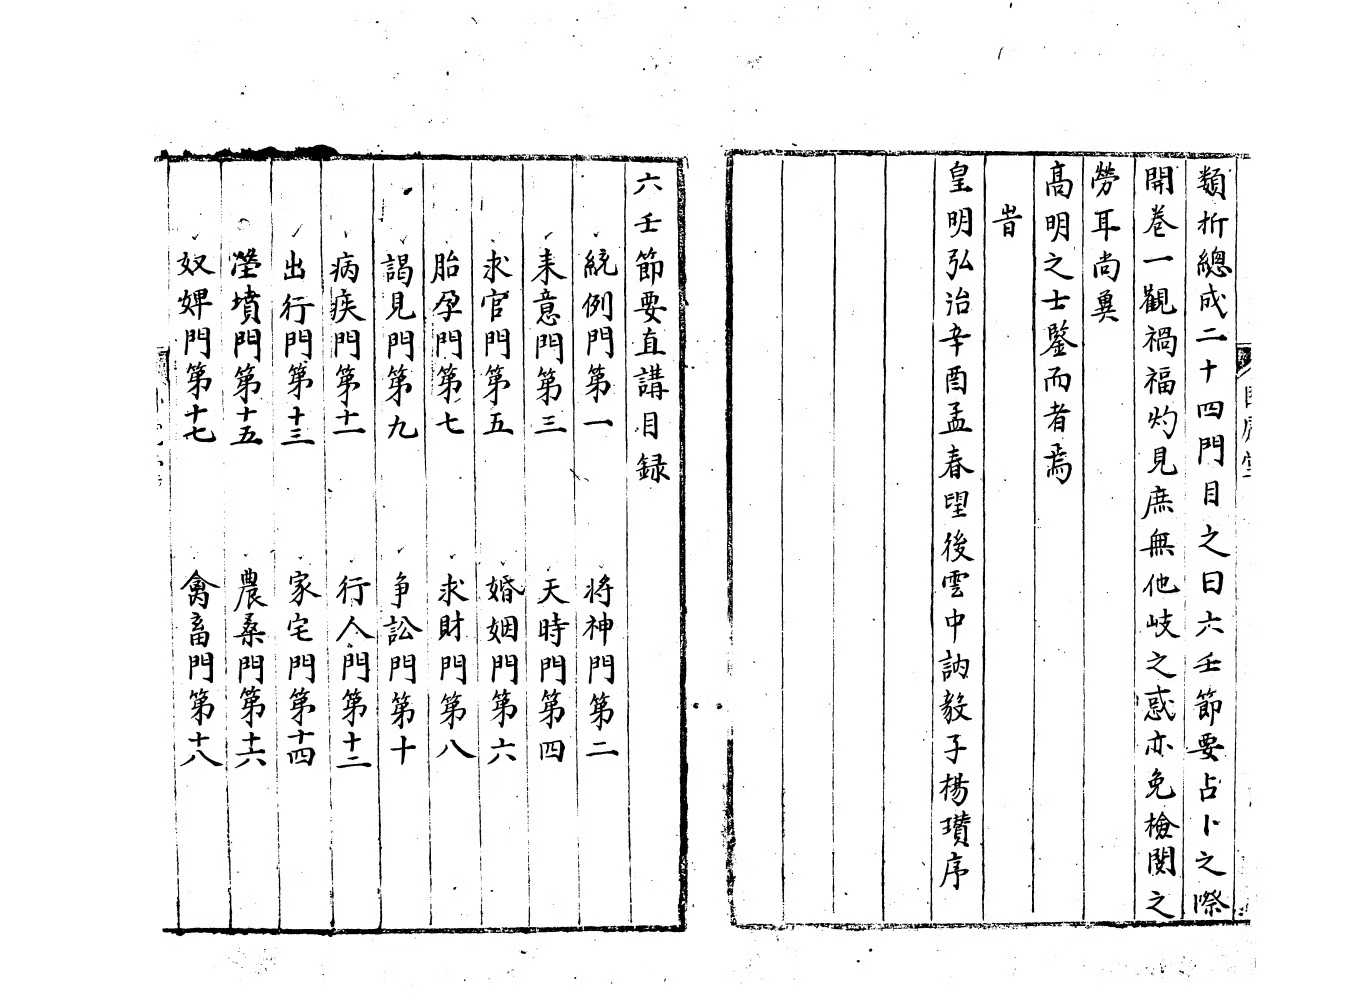 類析總成二十四門目之曰六壬節要占卜之際
開卷一觀禍福灼見庶無他岐之惑亦免檢閱之
勞耳尚兾
高明之士鑒而者焉
旹
皇明弘治辛酉孟春望後雲中訥毅子楊瓚序
六壬節要直講目録
統例門第一
將神門第二
来意門第三
天時門第四
求官門第五
婚姻門第六
胎孕門第七
求財門第八
謁見門第九
争訟門第十
病疾門第十一
行人門第十二
出行門第十三
家宅門第十四
塋墳門第十五
農桑門第十六
奴婢門第十七
禽畜門第十八